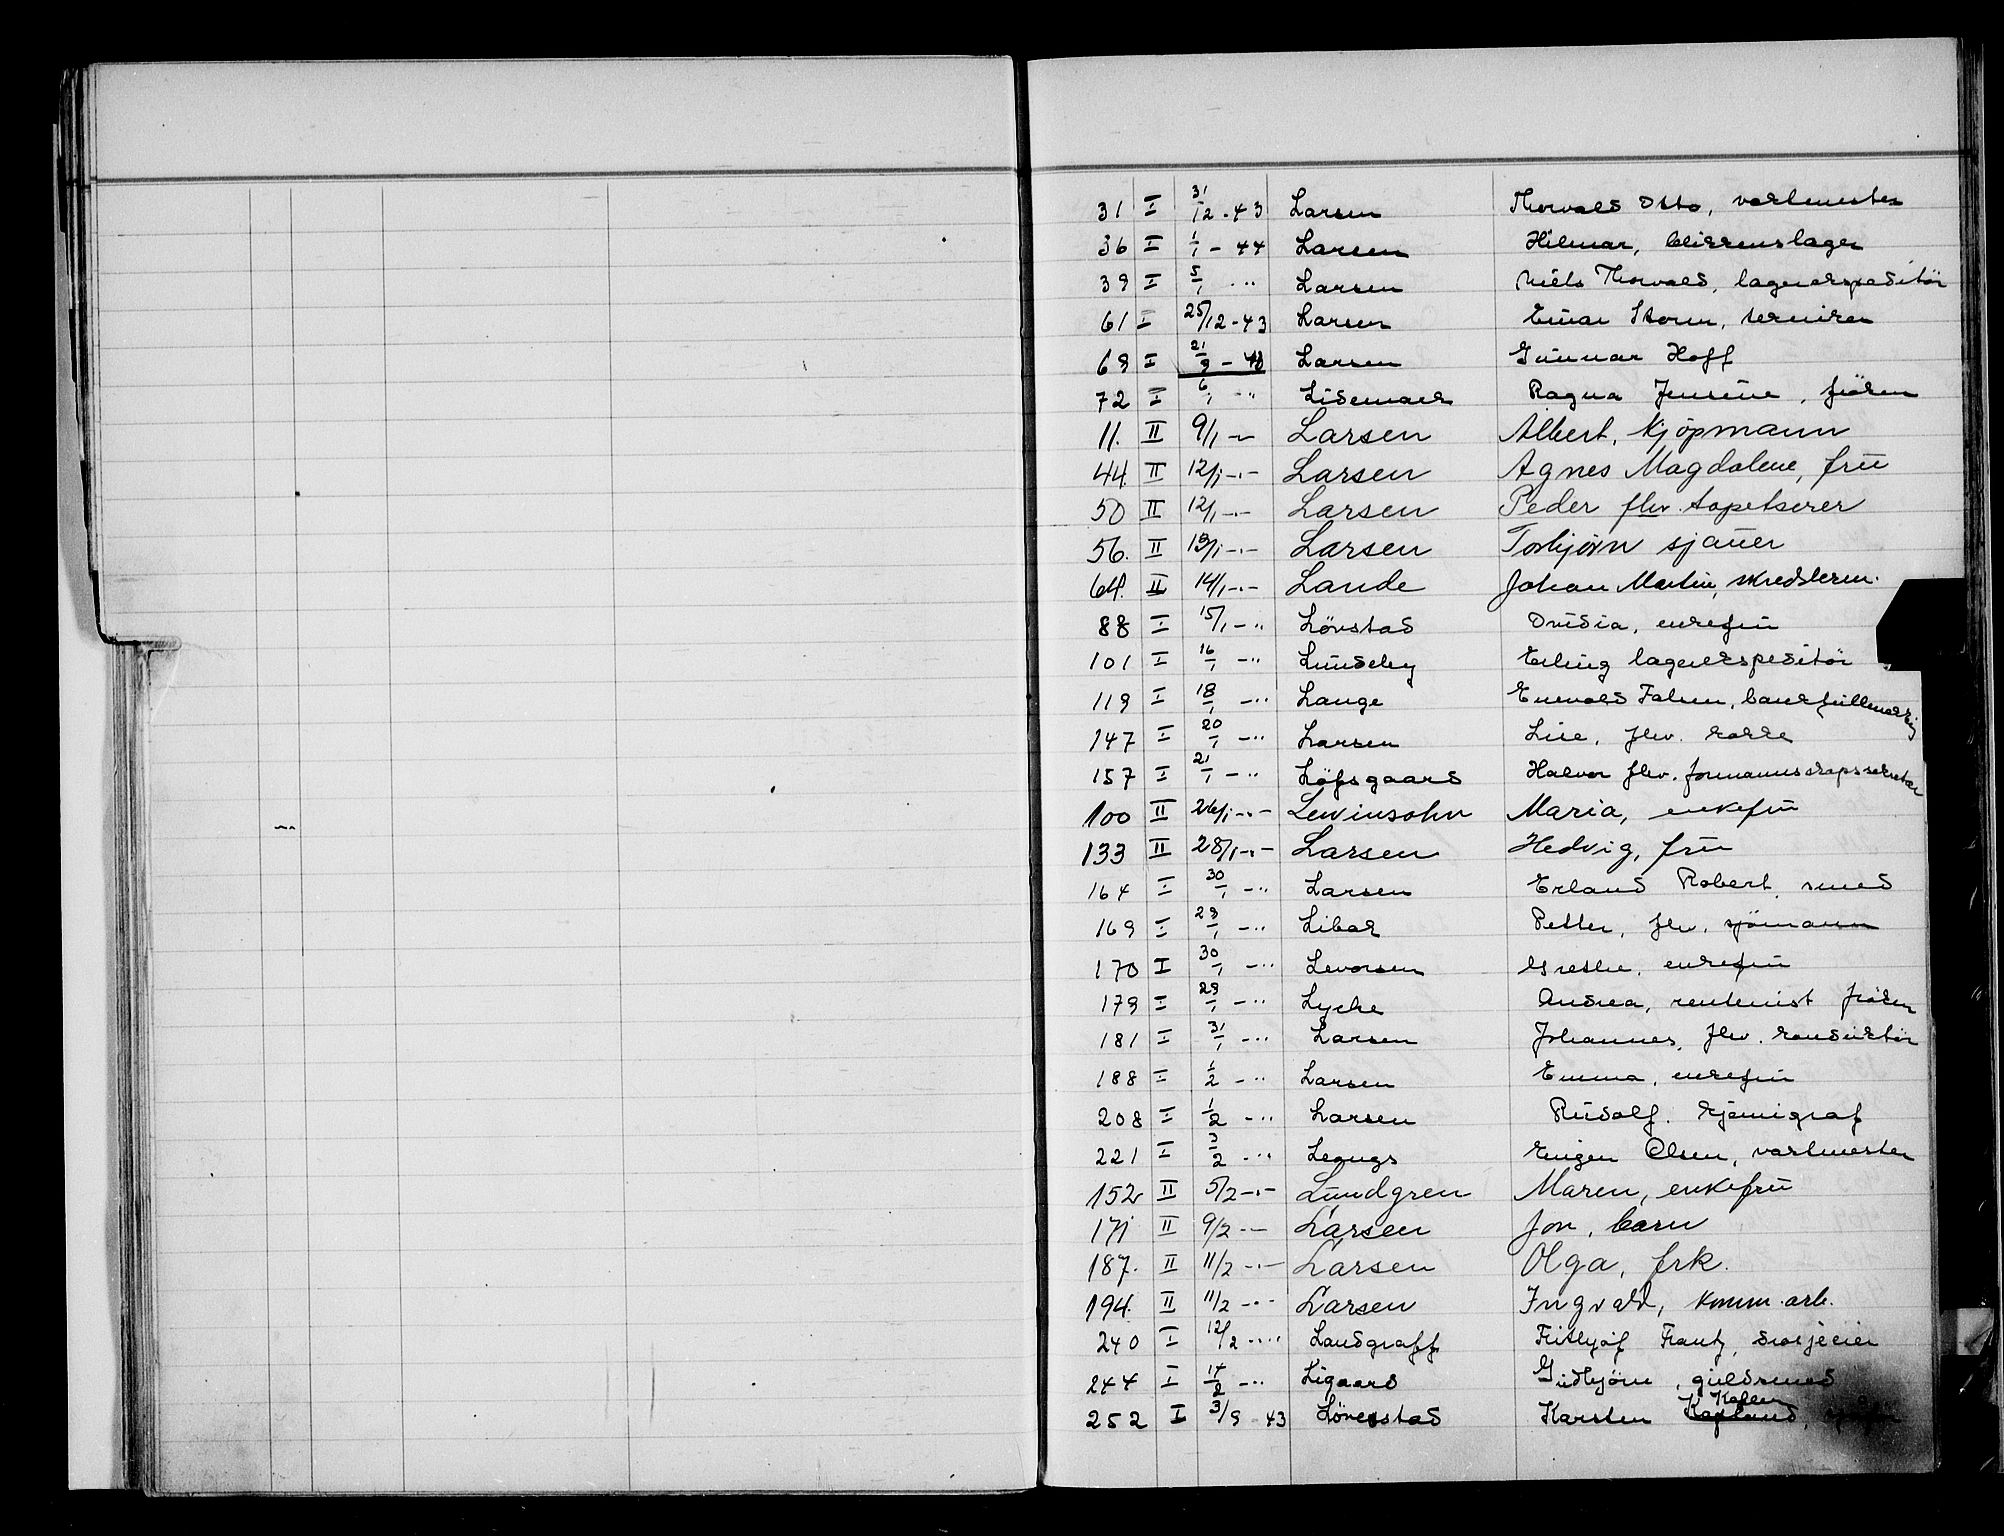 31 I 31/12-43 Larsen Thorvald Otto, vaktmester
36 I 1/1 - 44 Larsen Hilmar, blikkenslager
39 I 5/1 - " Larsen Niels Thorvald, lagerekspeditör
61 I 25/12-43 Larsen Einar Storm, tekniker
69 I 21/9 - Larsen Gunnar Hoff
72 I 6/1 " Lidemark Ragna Jensine, fröken
11. II 9/1 -- Larsen Albert, kjöpmann
44. II 12/1 -.- Larsen Agnes Magdalene, frü
50 II 12/1 -.- Larsen Peder fhv. tapetserer
56. II 13/1 -.- Larsen Torbjörn sjauer
64. II 14/1 -.- Lande Johan Martin, skredderm.
88 I 15/1 - " Lövstad Ovidia, enkefrü
101 I 16/1 - " Lundeby Erling lagerekspeditör
119 I 18/1 - " Lange Enevald Falsen, bankfullmektig
147 I 20/1 - " Larsen Lise, fhv. kokke
157 I 21/1 - " Löfsgaard Halvor fhv. formannskapssekretær
100 II 26/1 -.- Levinsohn Maria, enkefrü
133 II 28/1 -.- Larsen Hedvig, frü
164 I 30/1 - " Larsen Erland Robert smed
169 I 29/1 - " Libak Petter, fhv. sjömann
170 I 30/1 - " Levorsen Grethe, enkefrü
179 I 29/1 - " Lyche Andrea, rentenist fröken
181 I 31/1 - " Larsen Johannes, fhv. konduktör
188 I 1/2 - " Larsen Emma, enkefrü
208 I 1/2 - " Larsen Rudolf. kjemigraf
221 I 3/2 - " Legugs Eugen Olsen, vaktmester
152 II 5/2 -.- Lundgren Maren, enkefrü
171 II 9/2 -- Larsen Jon, barn
187. II 11/2 -.- Larsen Olga, frk.
194. II 11/2 -.- Larsen Ingvald, komm. arb.
240 I 12/2 - " Landgraff Fritjhof Frantz, drosjeeier
244 I 14/2 - " Ligaard Gudbjörn, guldsmed
Kaflen
252 I 3/9 - 43 Lövestad Karsten